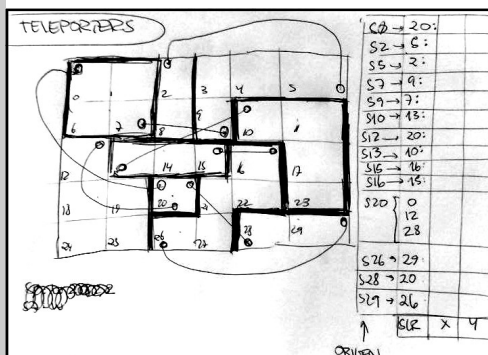 TELEPORTERS
0 1 2 3 4 5
6 7 8 9 10 11
12 14 15 16 17
18 19 20 21 22 23
24 25 26 27 28 29
S0 → 20:
S2 → 5:
S5 → 2:
S7 → 9:
S9 → 7:
S10 → 13:
S12 → 20:
S13 → 10:
S15 → 16:
S16 → 15:
S20 { 0
12
28
S26 → 29:
S28 → 20
S29 → 26
SLR X Y